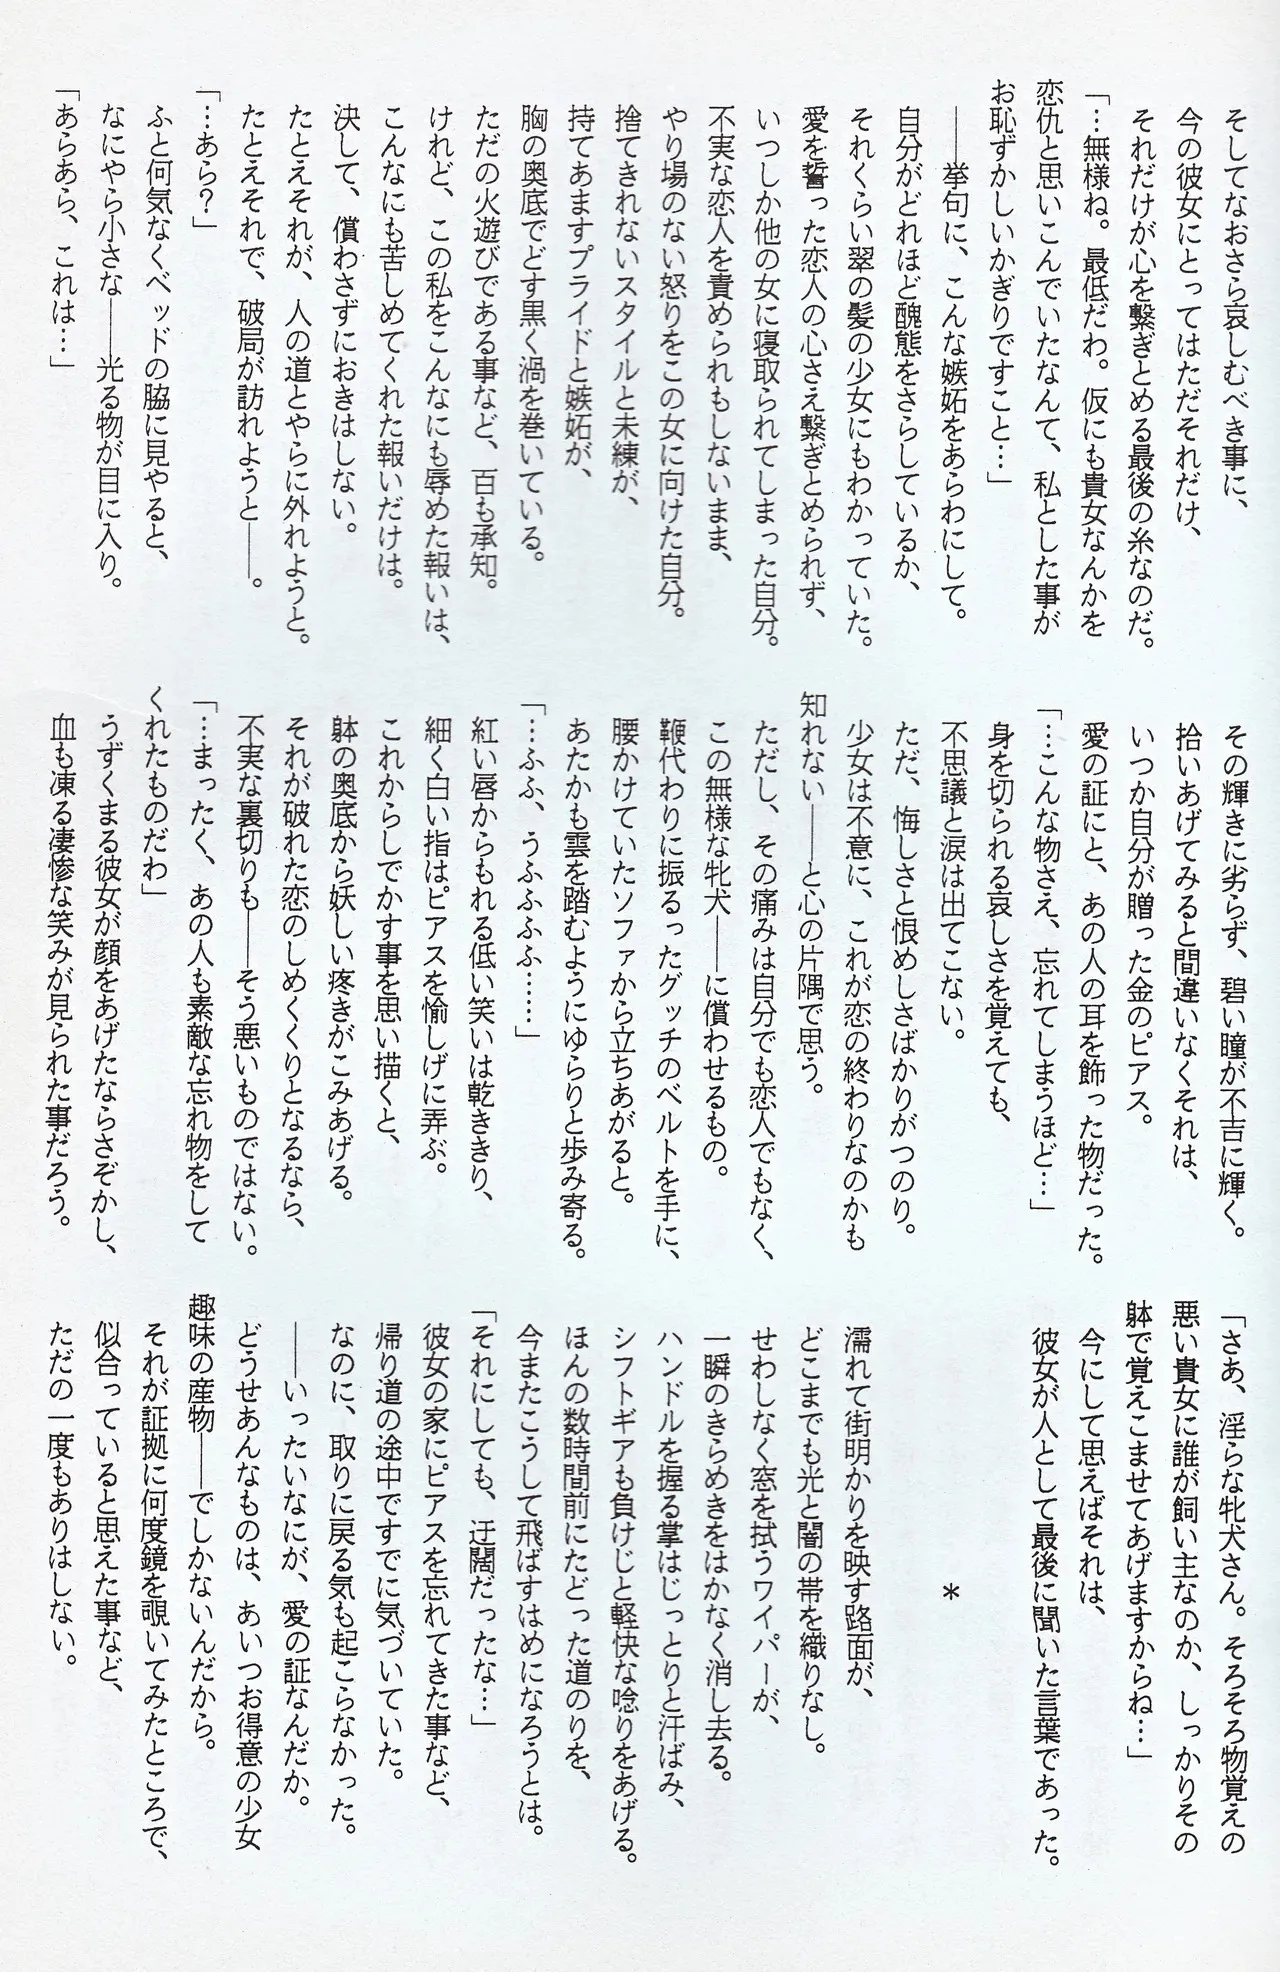 そしてなおさら哀しむべき事に、
今の彼女にとってはただそれだけ、
それだけが心を繋ぎとめる最後の糸なのだ。
「…無様ね。最低だわ。仮にも貴女なんかを
恋仇と思いこんでいたなんて、私とした事が
お恥ずかしいかぎりですこと…」
――挙句に、こんな嫉妬をあらわにして。
自分がどれほど醜態をさらしているか、
それくらい翠の髪の少女にもわかっていた。
愛を誓った恋人の心さえ繋ぎとめられず、
いつしか他の女に寝取られてしまった自分。
不実な恋人を責められもしないまま、
やり場のない怒りをこの女に向けた自分。
捨てきれないスタイルと未練が、
持てあますプライドと嫉妬が、
胸の奥底でどす黒く渦を巻いている。
ただの火遊びである事など、百も承知。
けれど、この私をこんなにも辱めた報いは、
こんなにも苦しめてくれた報いだけは。
決して、償わさずにおきはしない。
たとえそれが、人の道とやらに外れようと。
たとえそれで、破局が訪れようと――。
「…あら？」
ふと何気なくベッドの脇に見やると、
なにやら小さな――光る物が目に入り。
「あらあら、これは…」
その輝きに劣らず、碧い瞳が不吉に輝く。
拾いあげてみると間違いなくそれは、
いつか自分が贈った金のピアス。
愛の証にと、あの人の耳を飾った物だった。
「…こんな物さえ、忘れてしまうほど…」
身を切られる哀しさを覚えても、
不思議と涙は出てこない。
ただ、悔しさと恨めしさばかりがつのり。
少女は不意に、これが恋の終わりなのかも
知れない――と心の片隅で思う。
ただし、その痛みは自分でも恋人でもなく、
この無様な牝犬――に償わせるもの。
鞭代わりに振るったグッチのベルトを手に、
腰かけていたソファから立ちあがると。
あたかも雲を踏むようにゆらりと歩み寄る。
「…ふふ、うふふふふ……」
紅い唇からもれる低い笑いは乾ききり、
細く白い指はピアスを愉しげに弄ぶ。
これからしでかす事を思い描くと、
躰の奥底から妖しい疼きがこみあげる。
それが破れた恋のしめくくりとなるなら、
不実な裏切りも――そう悪いものではない。
「…まったく、あの人も素敵な忘れ物をして
くれたものだわ」
うずくまる彼女が顔をあげたならさぞかし、
血も凍る凄惨な笑みが見られた事だろう。
「さあ、淫らな牝犬さん。そろそろ物覚えの
悪い貴女に誰が飼い主なのか、しっかりその
躰で覚えこませてあげますからね…」
今にして思えばそれは、
彼女が人として最後に聞いた言葉であった。
＊
濡れて街明かりを映す路面が、
どこまでも光と闇の帯を織りなし。
せわしなく窓を拭うワイパーが、
一瞬のきらめきをはかなく消し去る。
ハンドルを握る掌はじっとりと汗ばみ、
シフトギアも負けじと軽快な唸りをあげる。
ほんの数時間前にたどった道のりを、
今またこうして飛ばすはめになろうとは。
「それにしても、迂闊だったな…」
彼女の家にピアスを忘れてきた事など、
帰り道の途中ですでに気づいていた。
なのに、取りに戻る気も起こらなかった。
――いったいなにが、愛の証なんだか。
どうせあんなものは、あいつお得意の少女
趣味の産物――でしかないんだから。
それが証拠に何度鏡を覗いてみたところで、
似合っていると思えた事など、
ただの一度もありはしない。